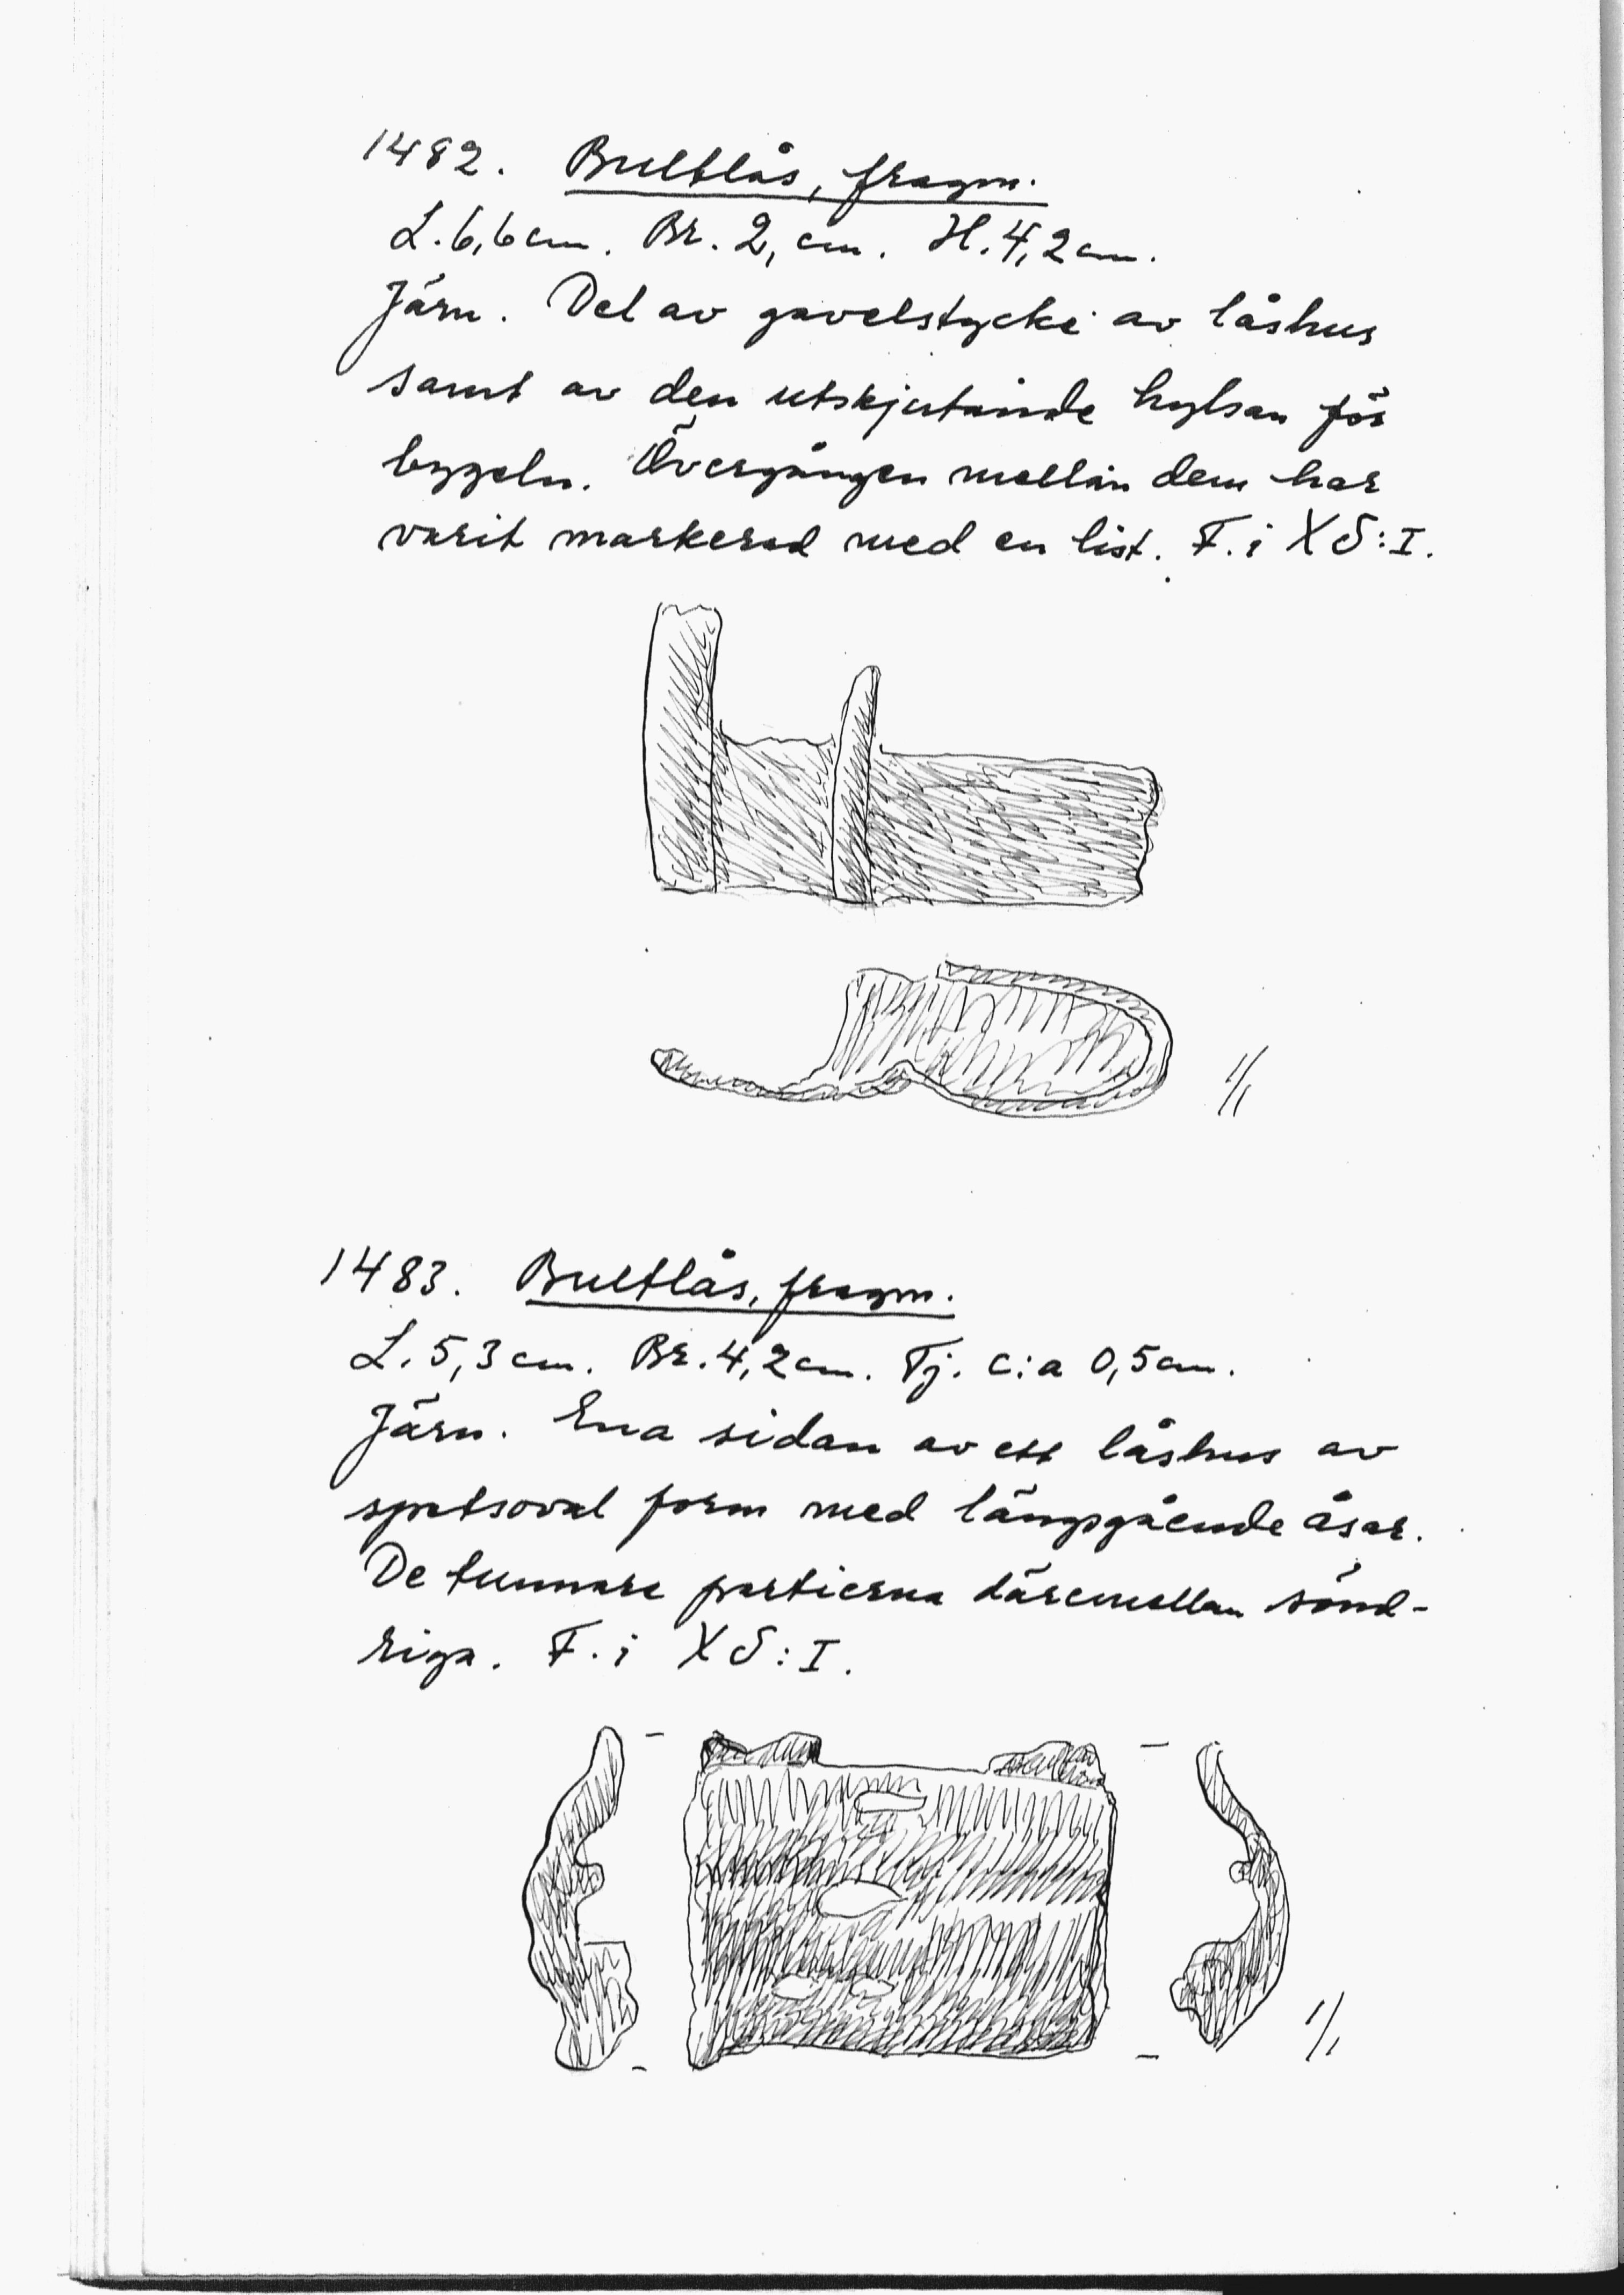 1482. Bultlås, fragm.
L. 6,6 cm. Br. 2, cm. H. 4,2 cm.
Järn. Del av gavelstycke av låshus
samt av den utskjutande hylsan för
bygeln. Övergången mellan dem har
varit markerad med en list. F. i XS:I.
1/1
1483. Bultlås, fragm.
L. 5,3 cm. Br. 4,2 cm. Tj. c:a 0,5 cm.
Järn. Ena sidan av ett låshus av
spetsoval form med längsgående åsar.
De tunnare partierna däremellan sönd-
riga. F. i XS:I.
1/1